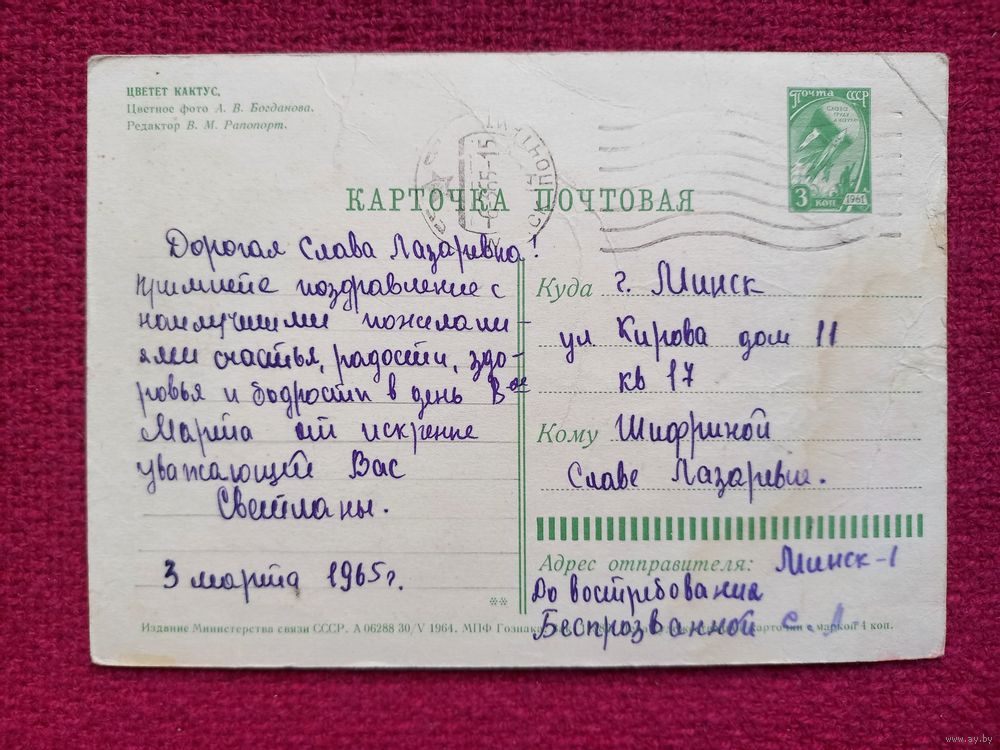 ЦВЕТЕТ КАКТУС,
Цветное фото А. В. Богданова.
Редактор В. М. Рапопорт.
Почта СССР
СЛАВА
ТРУДУ
И НАУКЕ
3 коп
1961
КАРТОЧКА ПОЧТОВАЯ
Дорогая Слава Лазаревна!
Примите поздравление с
наилучшими пожелани-
ями счастья, радости, здо-
ровья и бодрости в день 8ое
Марта от искренне
уважающей Вас
Светланы.
3 марта 1965г.
Куда г. Минск
ул Кирова дом 11
кв 17
Кому Шифриной
Славе Лазаревне.
Адрес отправителя: Минск-1
До востребования
Беспрозванной С. Л
**
Издание Министерства связи СССР. А 06288 30/V 1964. МПФ Гознака. карточки с маркой 4 коп.
www.ay.by